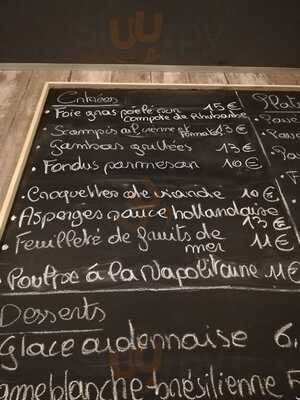 Entrées
• Foie gras poêlé sur 15 €
compote de Rhubarbe
• Scampis 13 €
• Gambas grillées 13 €
• Fondus parmesan 10 €
• Croquettes de viande 10 €
• Asperges sauce hollandaise
13 €
• Feuilleté de fruits de
mer 11 €
• à la Napolitaine 11 €
Desserts
Glace ardennaise 6,
ame blanche-brésilienne 5
Plat